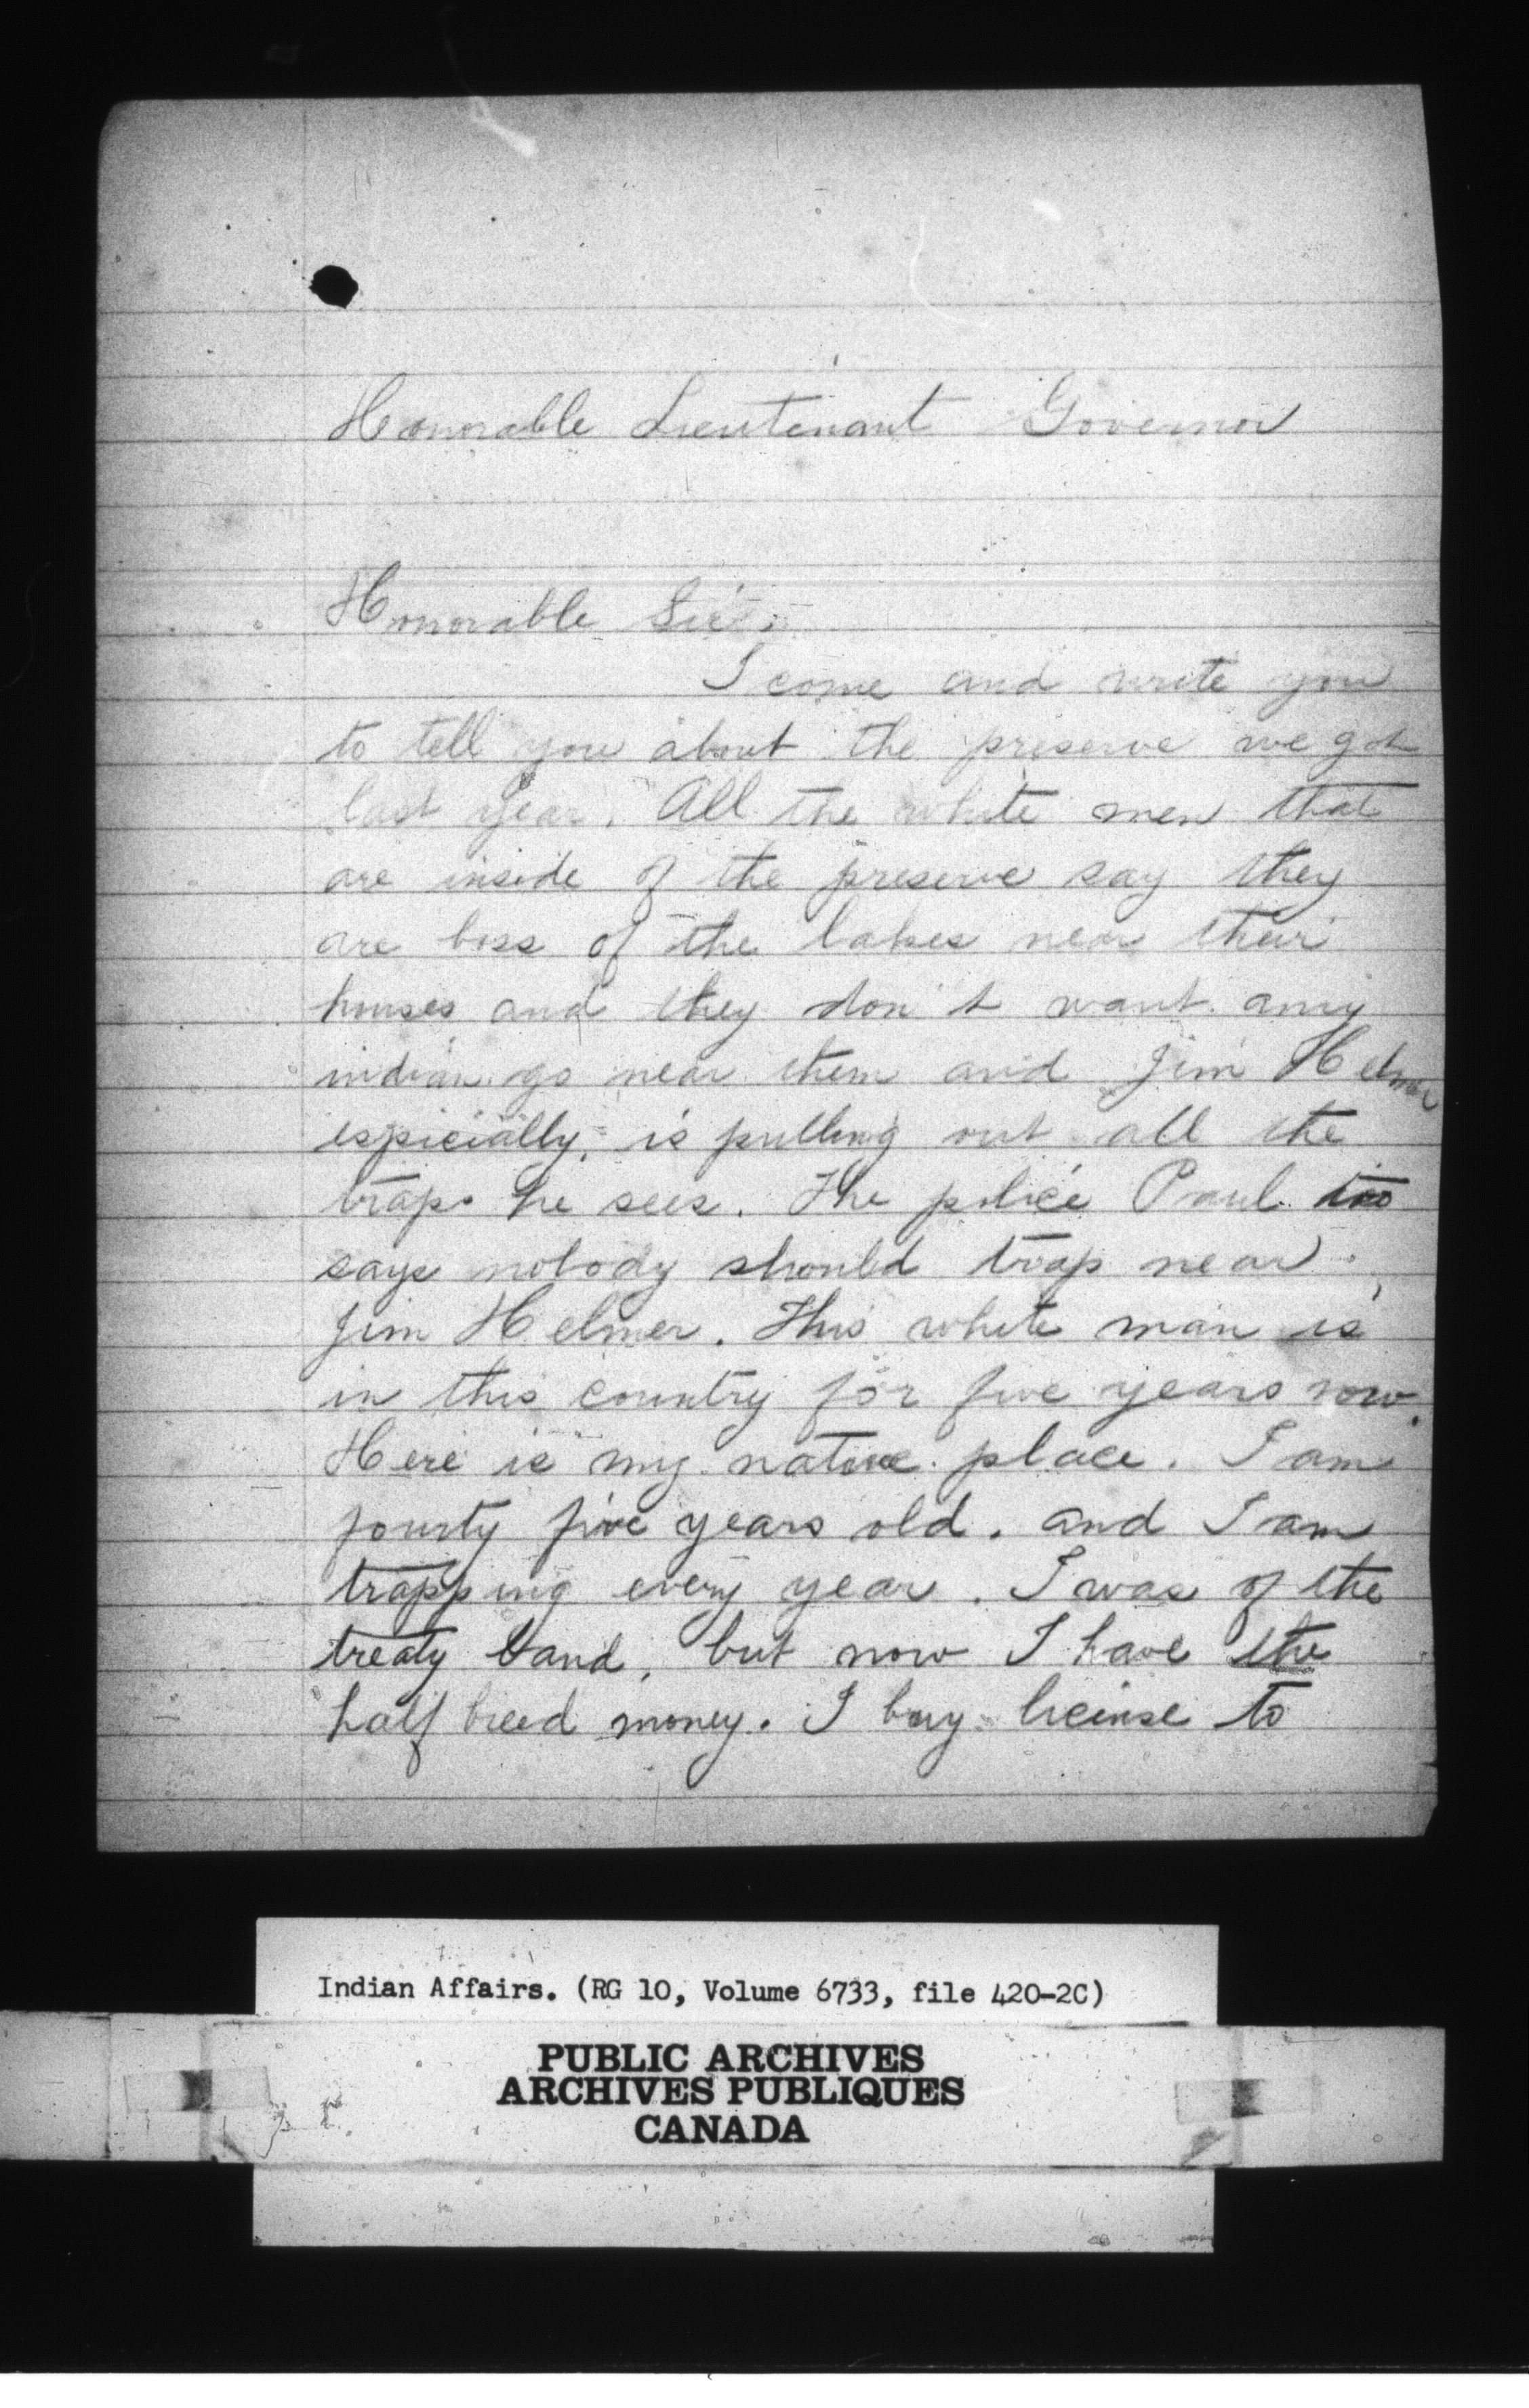 Honorable Lieutenant Governor
Honorable Sir:
I come and write you
to tell you about the preserve we got
last year. All the white men that
are inside of the preserve say they
are boss of the lakes near their
houses and they don't want any
indian go near them and Jim Helmer
espicially, is pulling out all the
traps he sees. The police Paul too
says nobody should trap near
Jim Helmer. This white man is
in this country for five years now.
Here is my native place. I am
fourty five years old. and I am
trapping every year. I was of the
treaty band, but now I have the
half breed money. I buy license to
Indian Affairs. (RG 10, Volume 6733, file 420-2C)
PUBLIC ARCHIVES
ARCHIVES PUBLIQUES
CANADA